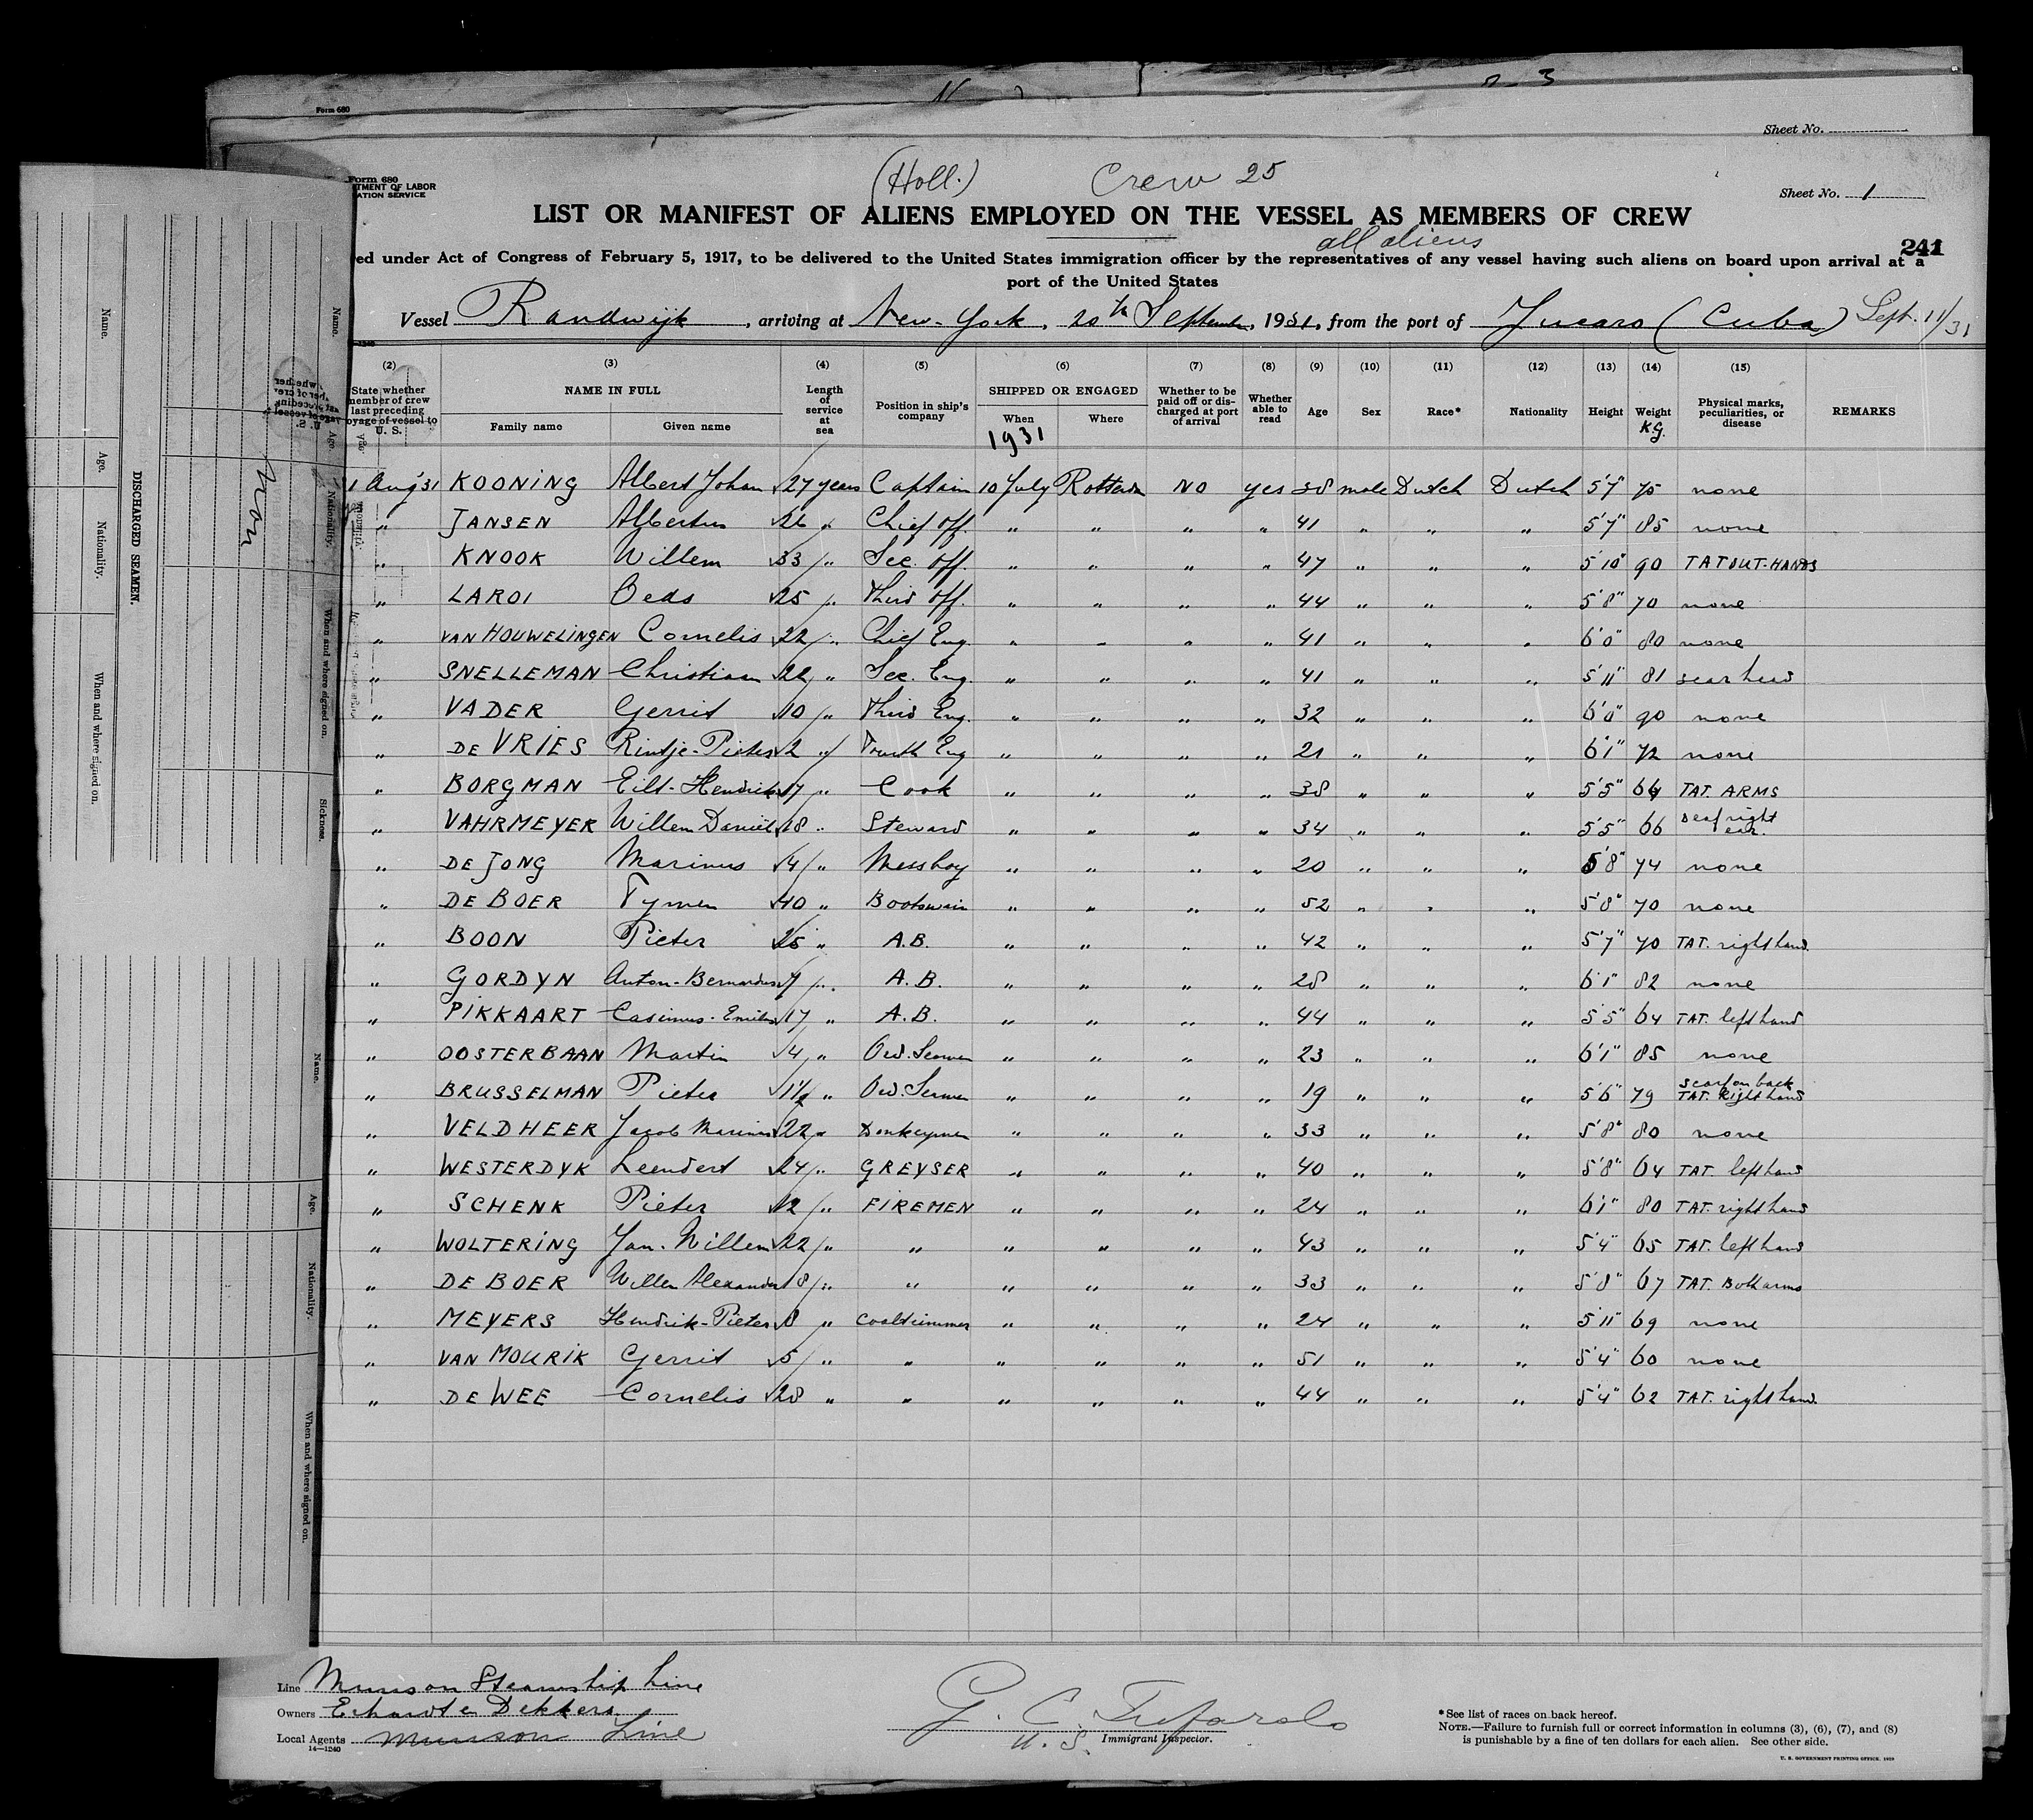 Form 680
Sheet No.
Form 680
TMENT OF LABOR
ATION SERVICE
(Holl.) Crew 25
Sheet No. 1
LIST OR MANIFEST OF ALIENS EMPLOYED ON THE VESSEL AS MEMBERS OF CREW
all aliens
241
ed under Act of Congress of February 5, 1917, to be delivered to the United States immigration officer by the representatives of any vessel having such aliens on board upon arrival at a
port of the United States
Vessel Randwijk, arriving at New-York, 20th September, 1931, from the port of Jucaro (Cuba) Sept. 11/31
(2) (3) (4) (5) (6) (7) (8) (9) (10) (11) (12) (13) (14) (15)
State whether member of crew last preceding oyage of vessel to U. S. NAME IN FULL Family name Given name Length of service at sea Position in ship's company SHIPPED OR ENGAGED When 1931 Where Whether to be paid off or discharged at port of arrival Whether able to read Age Sex Race* Nationality Height Weight K.G. Physical marks, peculiarities, or disease REMARKS
1 Aug '31 KOONING Albert Johan 27 years Captain 10 July Rotterdam NO yes 38 male Dutch Dutch 5'7" 75 none
" JANSEN Albertus 26 " Chief Off. " " " " 41 " " " 5'7" 85 none
" KNOOK Willem 33 " Sec. Off. " " " " 47 " " " 5'10" 90 TATOUT-HANDS
" LAROI Oeds 25 " Third Off. " " " " 44 " " " 5'8" 70 none
" VAN HOUWELINGEN Cornelis 22 " Chief Eng. " " " " 41 " " " 6'0" 80 none
" SNELLEMAN Christiaan 22 " Sec. Eng. " " " " 41 " " " 5'11" 81 scar head
" VADER Gerrit 10 " Third Eng. " " " " 32 " " " 6'0" 90 none
" DE VRIES Rintje-Pieter 2 " Fourth Eng " " " " 21 " " " 6'1" 72 none
" BORGMAN Eilt-Hendrik 17 " Cook " " " " 38 " " " 5'5" 64 TAT. ARMS
" VAHRMEYER Willem Daniël 18 " Steward " " " " 34 " " " 5'5" 66 deaf right ear.
" DE JONG Marinus 4 " Messboy " " " " 20 " " " 5'8" 74 none
" DE BOER Tymen 40 " Bootswain " " " " 52 " " " 5'8" 70 none
" BOON Pieter 25 " A.B. " " " " 42 " " " 5'7" 70 TAT. right hand.
" GORDYN Anton-Bernardus 7 " A.B. " " " " 28 " " " 6'1" 82 none
" PIKKAART Casimus-Emilus 17 " A.B. " " " " 44 " " " 5'5" 64 TAT. left hand
" OOSTERBAAN Martin 4 " Ord. Seamen " " " " 23 " " " 6'1" 85 none
" BRUSSELMAN Pieter 1½ " Ord. Seamen " " " " 19 " " " 5'6" 79 scar on back TAT. Right hand
" VELDHEER Jacob Marinus 22 " Donkeymen " " " " 33 " " " 5'8" 80 none
" WESTERDYK Leendert 24 " GREYSER " " " " 40 " " " 5'8" 64 TAT. left hand
" SCHENK Pieter 12 " FIREMEN " " " " 24 " " " 6'1" 80 TAT. right hand
" WOLTERING Jan. Willem 22 " " " " " " 43 " " " 5'4" 65 TAT. left hand
" DE BOER Willem Alexander 8 " " " " " " 33 " " " 5'8" 67 TAT. Both arms
" MEYERS Hendrik-Pieter 8 " Coaltrimmer " " " " 24 " " " 5'11" 69 none
" VAN MOURIK Gerrit 5 " " " " " " 51 " " " 5'4" 60 none
" DE WEE Cornelis 28 " " " " " " 44 " " " 5'4" 62 TAT. right hand.
Line Munson Steamship Line
Owners Erhardt en Dekkers
Local Agents Munson Line
14—1240
G. C. Tufarolo
U. S. Immigrant Inspector.
*See list of races on back hereof.
NOTE.—Failure to furnish full or correct information in columns (3), (6), (7), and (8)
is punishable by a fine of ten dollars for each alien. See other side.
U. S. GOVERNMENT PRINTING OFFICE. 1929
DISCHARGED SEAMEN.
Name. Age. Nationality. When and where signed on.
Name. Age Nationality. When and where signed on. Sickness.
Name. Age. Nationality. When and where signed on.